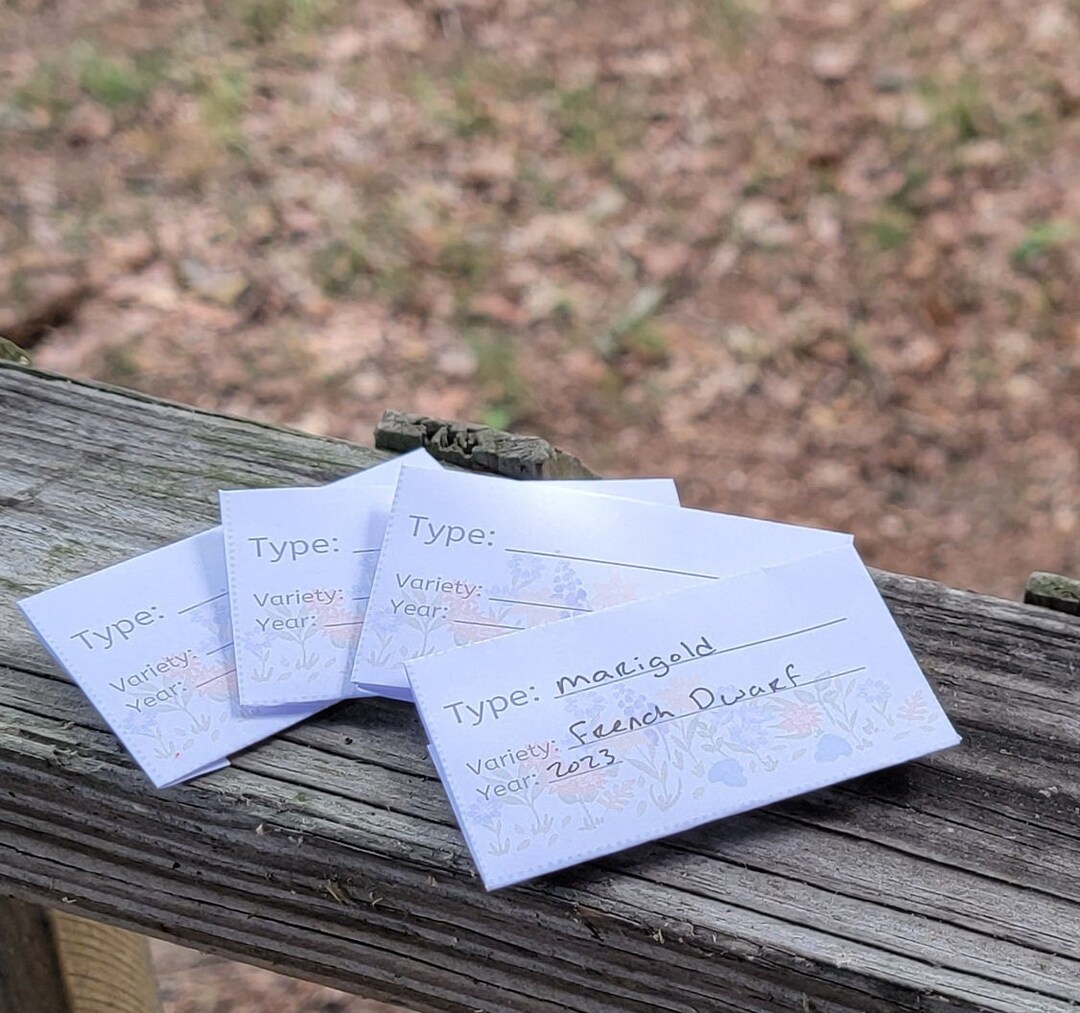 Type:
Variety:
Year:
Type:
Variety:
Year:
Type:
Variety:
Year:
Type: Marigold
Variety: French Dwarf
Year: 2023